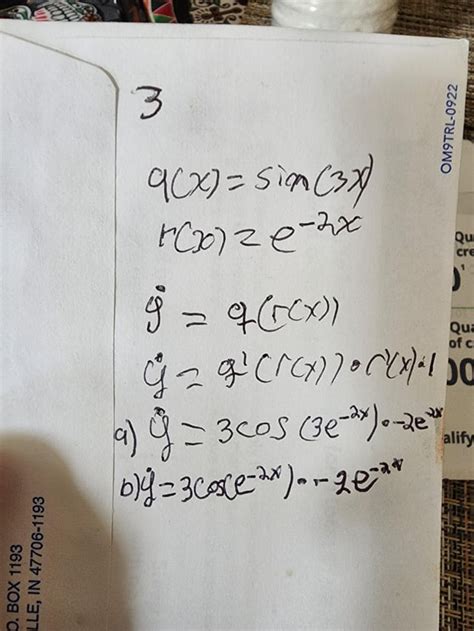 3
q(x) = sin(3x)
r(x) = e^-2x
ẏ = q(r(x))
ẏ = q'(r(x)) • r'(x) • 1
a) ẏ = 3cos(3e^-2x) • -2e^-2x
b) ẏ = 3cos(e^-2x) • -2e^-2x
OM9TRL-0922
Qu
cre
0
Qua
of c
00
alify
O. BOX 1193
LLE, IN 47706-1193